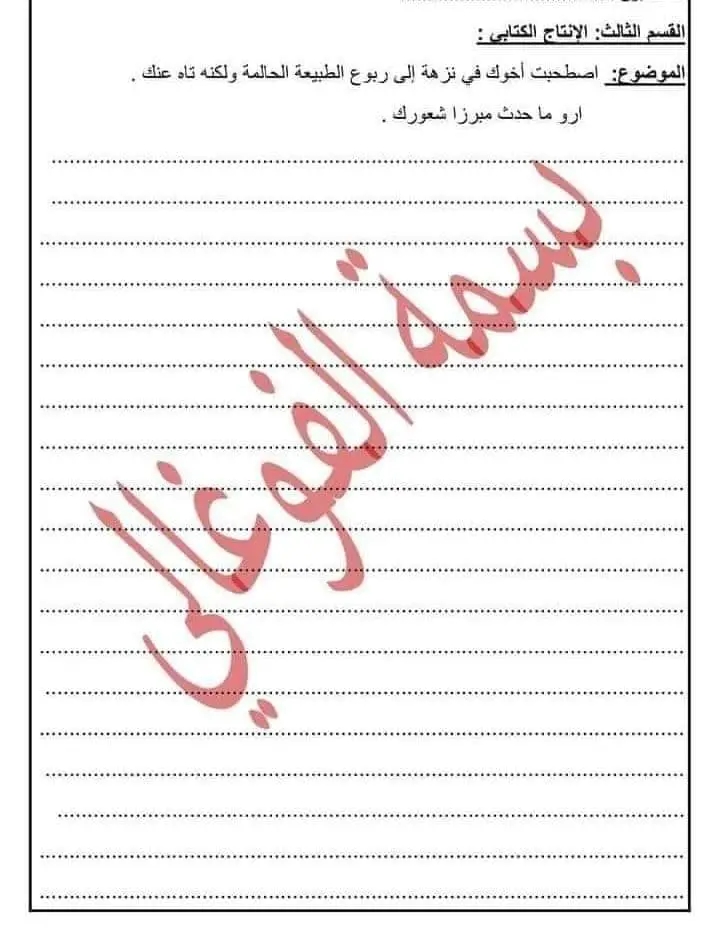 القسم الثالث: الإنتاج الكتابي :
الموضوع: اصطحبت أخوك في نزهة إلى ربوع الطبيعة الحالمة ولكنه تاه عنك .
ارو ما حدث مبرزا شعورك .
بسمة الفوغالي